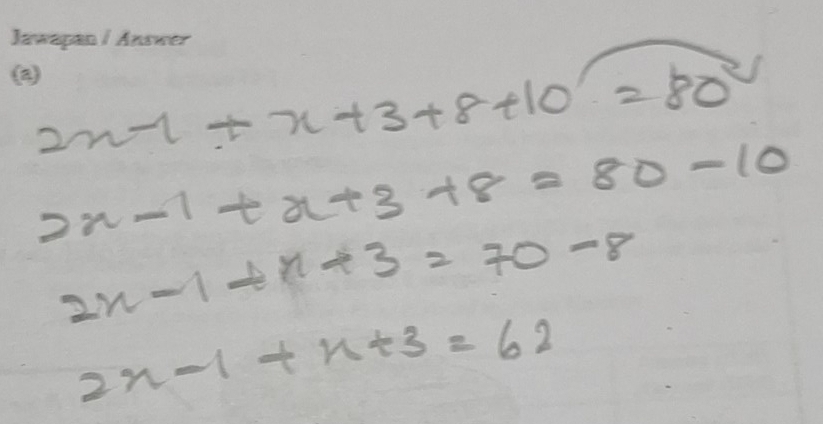 Jawapan / Answer
(a)
2x-1 + x+3+8+10 = 80
2x-1 + x+3+8 = 80-10
2x-1+x+3 = 70-8
2x-1+x+3 = 62